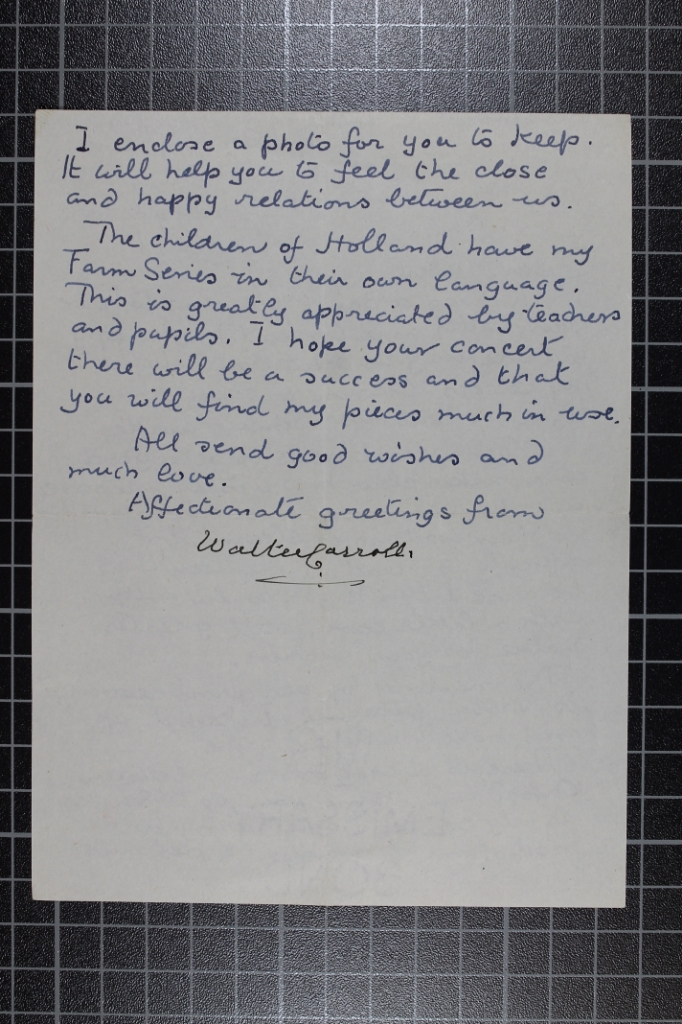 I enclose a photo for you to keep.
It will help you to feel the close
and happy relations between us.
The children of Holland have my
Farm Series in their own language.
This is greatly appreciated by teachers
and pupils. I hope your concert
there will be a success and that
you will find my pieces much in use.
All send good wishes and
much love.
Affectionate greetings from
Walter Carroll.